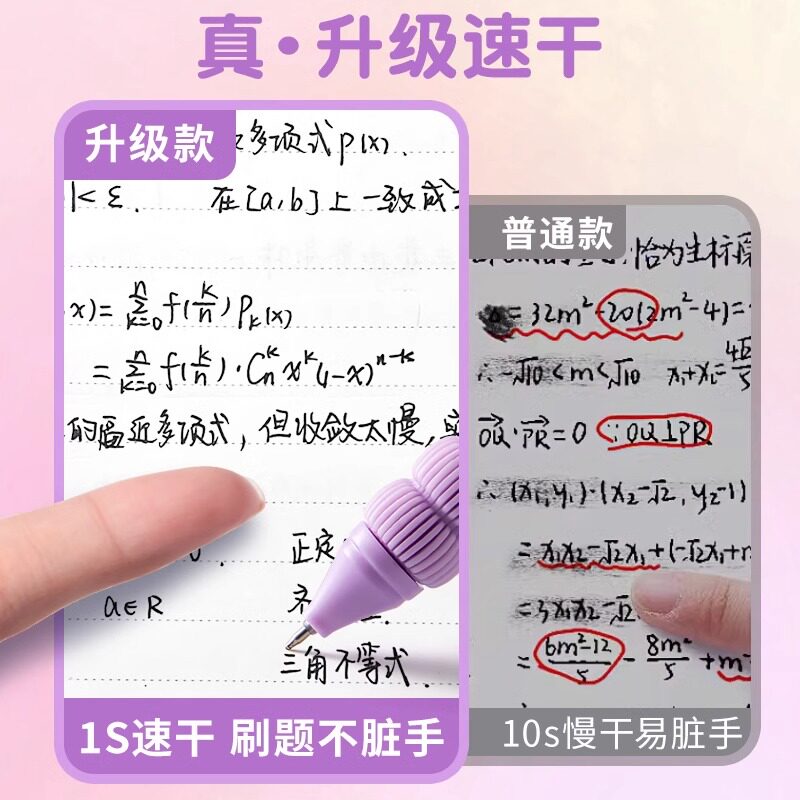 真·升级速干
升级款
多项式p(x).
|<ε. 在[a,b]上一致成
x)=∑ⁿₖ₌₀f(k/n)Pₖ(x)
=∑ⁿₖ₌₀f(k/n)·Cₙᵏxᵏ(1-x)ⁿ⁻ᵏ
的逼近多项式,但收敛太慢,实
正定
a∈R 齐
三角不等式.
1S速干 刷题不脏手
普通款
恰为坐标原
=32m²-20(2m²-4)=
∴-√10<m<√10 x₁+x₂=4√2/5
→OQ·→PR=0 ∵OQ⊥PR
∴(x₁,y₁)·(x₂-√2,y₂-1)
=x₁x₂-√2x₁+(-√2x₁+m
=3x₁x₂-√2
=6m²-12/5-8m²/5+m
10s慢干易脏手